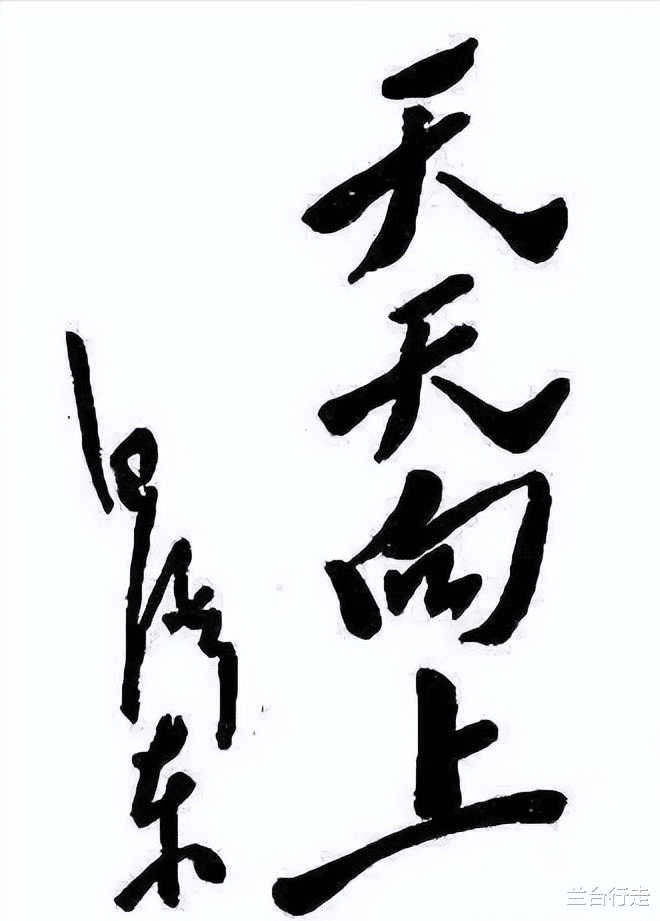 天天向上
毛泽东
兰台行走